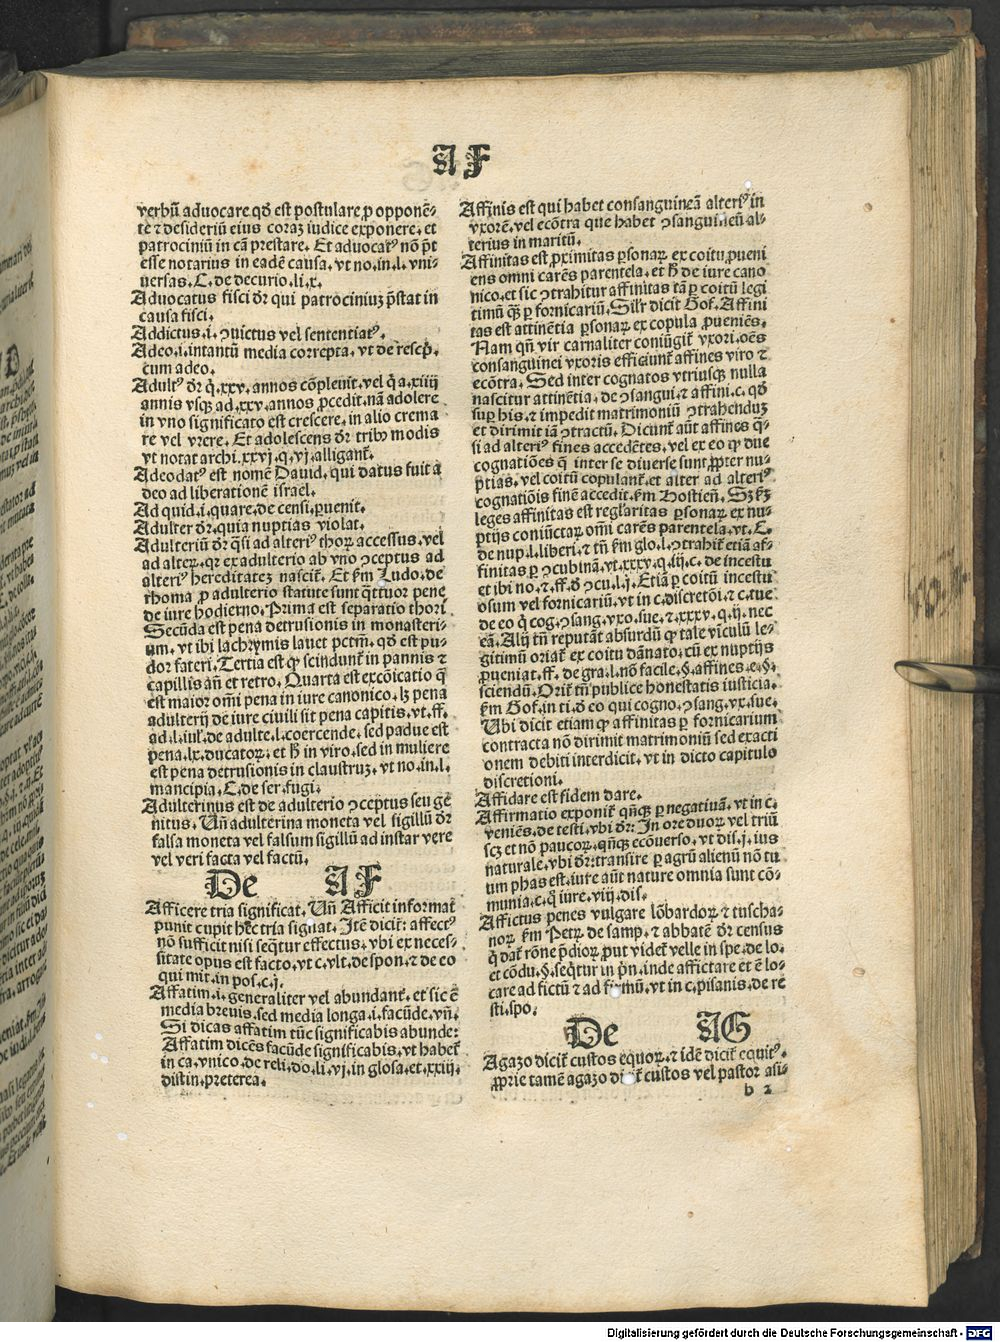 AF
verbū aduocare qđ est postulare ꝓ opponē-
te ⁊ desideriū eius coraʒ iudice exponere. et
patrociniū in cā prestare. Et aduocatꝰ nō p̄t
esse notarius in eadē causa. vt no. in. l. vni-
uersas. C. de decurio. li. x.
Aduocatus fisci dr̄ qui patrociniuʒ p̄stat in
causa fisci.
Addictus. i. ꝯuictus vel sententiatꝰ.
Adeo. i. intantū media correpta. vt de rescp̄.
cum adeo.
Adultꝰ dr̄ q̇. xxv. annos cōpleuit. vel q̇ a. xiiij
annis vsqꝫ ad. xxv. annos ꝓcedit. nā adolere
in vno significato est crescere. in alio crema
re vel vrere. Et adolescens dr̄ tribꝰ modis
vt notat archi. xxvj. q. vj. alligant᷑.
Adeodatꝰ est nomē Dauid. qui datus fuit a
deo ad liberationē israel.
Ad quid. i. quare. de censi. ꝑuenit.
Adulter dr̄. quia nuptias violat.
Adulteriū dr̄ q̄si ad alteriꝰ thoꝝ accessus. vel
ad alteꝝ. qꝛ ex adulterio ab vno ꝯceptus ad
alteriꝰ hereditateʒ nascit᷑. Et ẜm Ludo. de
rhoma ꝓ adulterio statute sunt q̄ttuor pene
de iure hodierno. Prima est separatio thori
Secūda est pena detrusionis in monasteri-
um. vt ibi lachrymis lauet pctm̄. qđ est pu-
dor fateri. Tertia est ꝙ scindunt᷑ in pannis ⁊
capillis añ et retro. Quarta est excōicatio q̄
est maior oīm pena in iure canonico. lꝫ pena
adulterij de iure ciuili sit pena capitis. vt. ff.
ad. l. iul̓. de adulte. l. coercende. sed padue est
pena. lx. ducatoꝝ. et ħ in viro. sed in muliere
est pena detrusionis in claustruʒ. vt no. in. l.
mancipia. C. de ser. fugi.
Adulterinus est de adulterio ꝯceptus seu ge
nitus. Vñ adulterina moneta vel sigillū dr̄
falsa moneta vel falsum sigillū ad instar vere
vel veri facta vel factū.
De AF
Afficere tria significat. Vñ Afficit informat
punit cupit hec tria signat. Itē dicit᷑: affectꝰ
nō sufficit nisi seq̄tur effectus. vbi ex neces-
sitate opus est facto. vt c. vlt. de spon. ⁊ de eo
qui mit. in pos. c. j.
Affatim. i. generaliter vel abundant᷑. et sic ē
media breuis. sed media longa. i. facūde. vñ.
Si dicas affatim tūc significabis abunde:
Affatim dicēs facūde significabis. vt habet᷑
in ca. vnico. de reli. do. li. vj. in glosa. et. xxiij.
distin. preterea.
Affinis est qui habet consanguineā alteriꝰ in
vxorē. vel ecōtra que habet ꝯsanguineū al-
terius in maritū.
Affinitas est ꝓximitas ꝑsonaꝝ ex coitu ꝓueni
ens omni carēs parentela. et ħ de iure cano
nico. et sic ꝯtrahitur affinitas tā ꝑ coitū legi
timū q̄ꝫ ꝑ fornicariū. Silr̄ dicit Gof. Affini
tas est attinētia ꝑsonaꝝ ex copula ꝓueniēs.
Nam qñ vir carnaliter coniūgit᷑ vxori. oēs
consanguinei vxoris efficiunt᷑ affines viro ⁊
ecōtra. Sed inter cognatos vtriusqꝫ nulla
nascitur attinētia. de ꝯsangui. ⁊ affini. c. qđ
sup his. ⁊ impedit matrimoniū ꝯtrahenduʒ
et dirimit iā ꝯtractū. Dicunt᷑ aūt affines q̄-
si ad alteriꝰ fines accedētes. vel ex eo ꝙ due
cognatiōes q̄ inter se diuerse sunt ꝓpter nu-
ptias. vel coitū copulant᷑. et alter ad alteriꝰ
cognatiōis finē accedit. ẜm Hostieñ. Sꝫ ẜꝫ
leges affinitas est reglaritas ꝑsonaꝝ ex nu-
ptijs coniūctaꝝ omni carēs parentela. vt. C.
de nup. l. liberi. ⁊ tñ ẜm glo. l. ꝯtrahit᷑ etiā af-
finitas ꝑ ꝯcubinā. vt. xxxv. q. iij. c. de incestu
et ibi no. ⁊. ff. đ ꝯcu. l. j. Etiā ꝑ coitū incestu
osum vel fornicariū. vt in c. discretōi. ⁊ c. tue
de eo q̇ cog. ꝯsang. vxo. sue. ⁊. xxxv. q. ij. nec
eā. Alij tñ reputāt absurdū ꝙ tale vīculū le-
gitimū oriat᷑ ex coitu dānato. cū ex nuptijs
ꝓueniat. ff. de gra. l. nō facile. §. affines. e. §.
sciendū. Orit᷑ tñ publice honestatis iusticia.
ẜm Gof. in ti. đ eo qui cogno. ꝯsang. vx. sue.
Ubi dicit etiam ꝙ affinitas ꝑ fornicarium
contracta nō dirimit matrimoniū sed exacti
onem debiti interdicit. vt in dicto capitulo
discretioni.
Affidare est fidem dare.
Affirmatio exponit᷑ qñqꝫ ꝑ negatiuā. vt in c.
veniēs. de testi. vbi dr̄: In ore duoꝝ vel triū
scꝫ et nō paucoꝝ. qñqꝫ ecōuerso. vt dis. j. ius
naturale. vbi dr̄: transire ꝑ agrū alienū nō tu
um phas est. iure aūt nature omnia sunt cō-
munia. c. q̇ iure. viij. dis.
Affictus penes vulgare lōbardoꝝ ⁊ tuscha-
noꝝ ẜm Petꝝ de samp. ⁊ abbatē dr̄ census
q̇ dat᷑ rōne p̄dioꝝ. put videt᷑ velle in spe. de lo.
et cōdu. §. seq̄tur in pñ. inde affictare et ē lo-
care ad fictū ⁊ ad firmū. vt in c. pisanis. de re
sti. spo.
De AG
Agazo dicit᷑ custos equoꝝ. ⁊ idē dicit᷑ equitꝰ.
ꝓprie tamē agazo dicit᷑ custos vel pastor asi-
b 2
Digitalisierung gefördert durch die Deutsche Forschungsgemeinschaft - DFG